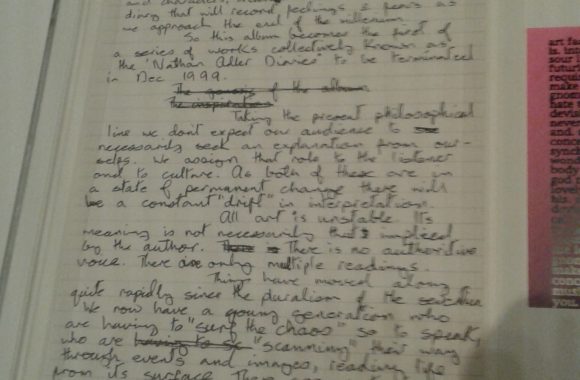 and characters,
diary that will record feelings & fears as
we approach the end of the millenium.
So this album becomes the first of
a series of works collectively known as
the 'Nathan Adler Diaries' to be terminated
in Dec 1999.
The genesis of the album
The inspiration
Taking the present philosophical
line we dont expect our audience to
necessarily seek an explanation from our-
selfs. We assign that role to the listener
and to culture. As both of these are in
a state of permanent change there will
be a constant "drift" in interpretation.
All art is unstable. Its
meaning is not necessarily that implied
by the author. There is There is no authoritive
voice. There are only multiple readings.
Things have moved along
quite rapidly since the pluralism of the seventies
We now have a young generation who
are having to "surf the chaos" so to speak,
who are having to "scanning" their way
through events and images, reading life
from its surface. There
art
is
sour
make
hate
devis
never
and
conc
synch
wond
body
god
love
his
make
conc
mus
you.